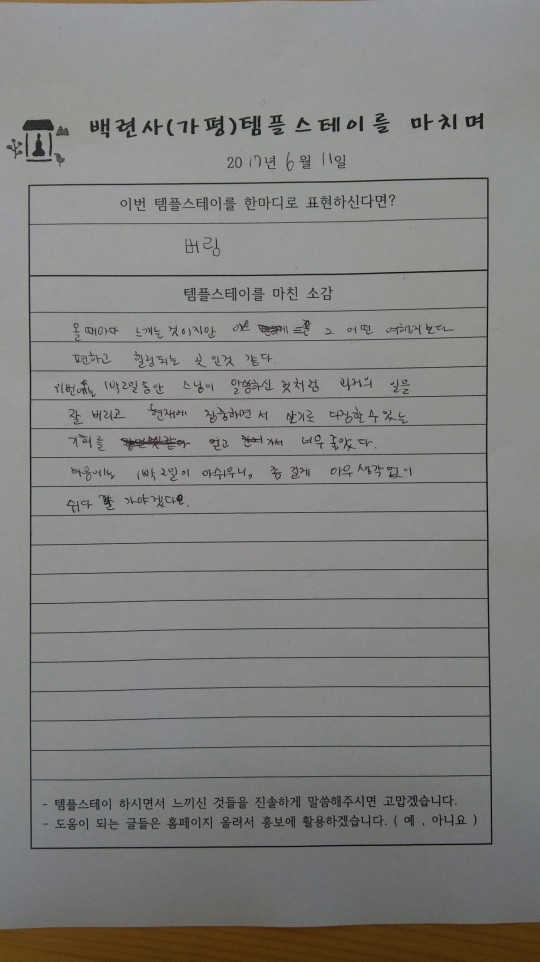 백련사(가평)템플스테이를 마치며
2017년 6월 11일
이번 템플스테이를 한마디로 표현하신다면?
버림
템플스테이를 마친 소감
올때마다 느끼는 것이지만 그 어떤 여행지보다
편하고 힐링되는 곳인것 같다.
이번에는 1박2일동안 스님이 말씀하신 것처럼 과거의 일을
잘 버리고 현재에 집중하면서 살기로 다짐할수있는
기회를 얻고 가서 너무 좋았다.
다음에는 1박2일이 아쉬우니, 좀 길게 아무생각없이
쉬다 가야겠다.
- 템플스테이 하시면서 느끼신 것들을 진솔하게 말씀해주시면 고맙겠습니다.
- 도움이 되는 글들은 홈페이지 올려서 홍보에 활용하겠습니다. ( 예 , 아니요 )